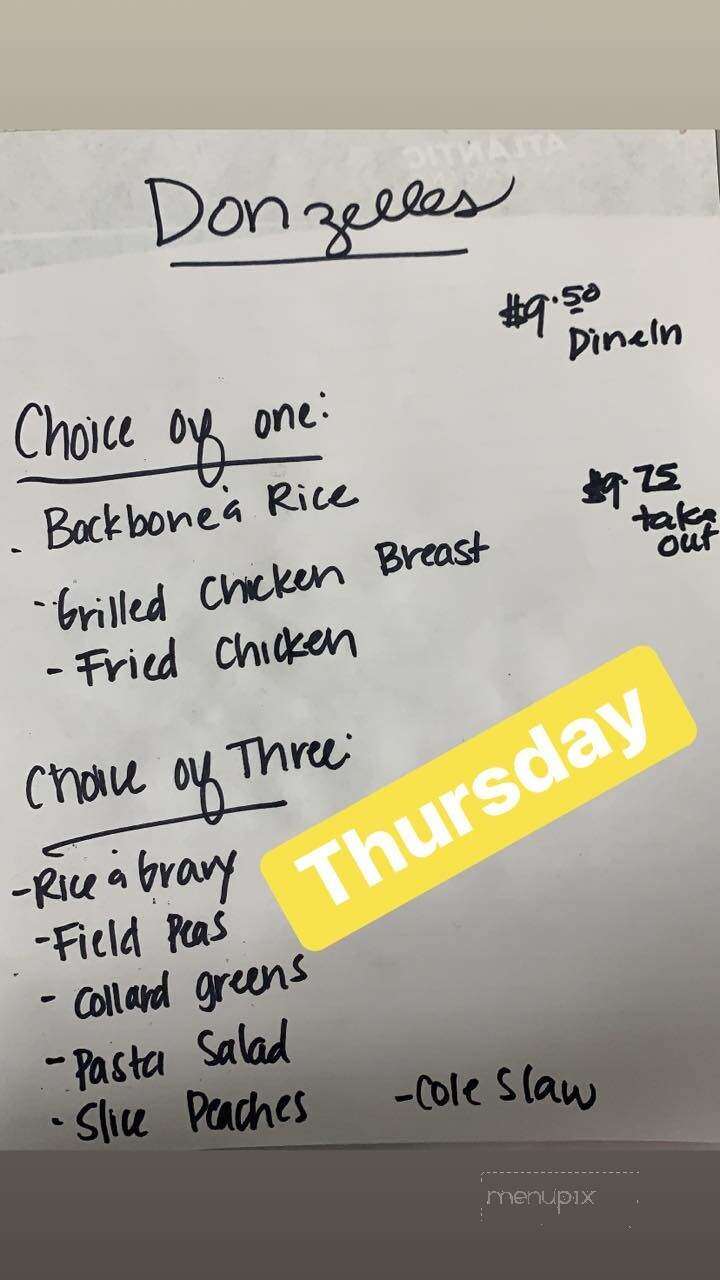 ATLANTIC
Donzelles
$9.50
DineIn
Choice of one:
. Backbone & Rice
$9.75
take
out
- Grilled Chicken Breast
- Fried Chicken
Thursday
Choice of Three:
- Rice & Gravy
- Field Peas
- Collard greens
- Pasta Salad
- Slice Peaches
- Cole Slaw
menupix